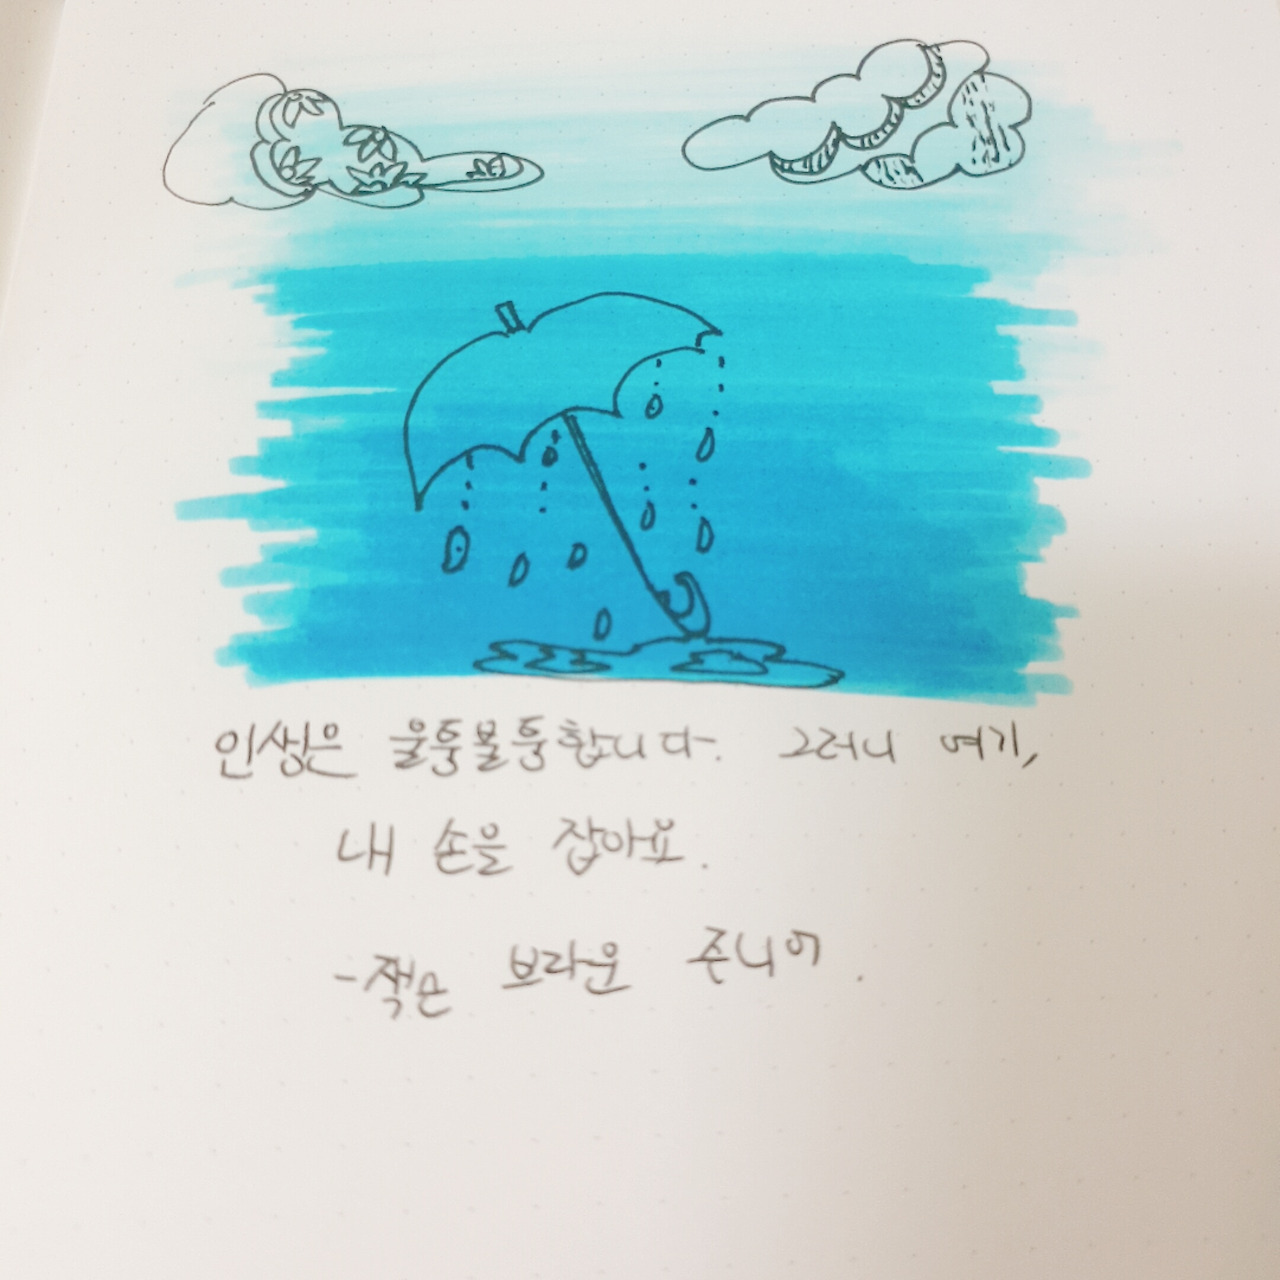 인생은 울퉁불퉁합니다. 그러니 여기,
내 손을 잡아요.
-잭슨 브라운 주니어.